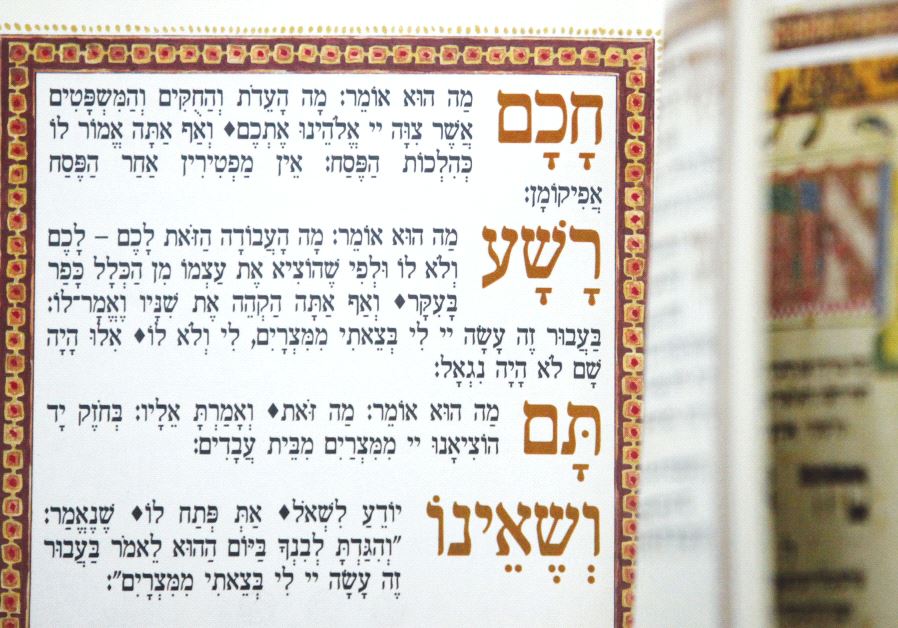 חָכָם מַה הוּא אוֹמֵר: מָה הָעֵדֹת וְהַחֻקִּים וְהַמִּשְׁפָּטִים
אֲשֶׁר צִוָּה יי אֱלֹהֵינוּ אֶתְכֶם♦ וְאַף אַתָּה אֱמוֹר לוֹ
כְּהִלְכוֹת הַפֶּסַח: אֵין מַפְטִירִין אַחַר הַפֶּסַח
אֲפִיקוֹמָן:
רָשָׁע מַה הוּא אוֹמֵר: מָה הָעֲבוֹדָה הַזֹּאת לָכֶם – לָכֶם
וְלֹא לוֹ וּלְפִי שֶׁהוֹצִיא אֶת עַצְמוֹ מִן הַכְּלָל כָּפַר
בָּעִקָּר♦ וְאַף אַתָּה הַקְהֵה אֶת שִׁנָּיו וֶאֱמָר־לוֹ:
בַּעֲבוּר זֶה עָשָׂה יי לִי בְּצֵאתִי מִמִּצְרָיִם, לִי וְלֹא לוֹ♦ אִלּוּ הָיָה
שָׁם לֹא הָיָה נִגְאָל:
תָּם מַה הוּא אוֹמֵר: מַה זֹּאת♦ וְאָמַרְתָּ אֵלָיו: בְּחֹזֶק יָד
הוֹצִיאָנוּ יי מִמִּצְרַיִם מִבֵּית עֲבָדִים:
וְשֶׁאֵינוֹ יוֹדֵעַ לִשְׁאֹל♦ אַתְּ פְּתַח לוֹ♦ שֶׁנֶּאֱמַר:
"וְהִגַּדְתָּ לְבִנְךָ בַּיּוֹם הַהוּא לֵאמֹר בַּעֲבוּר
זֶה עָשָׂה יי לִי בְּצֵאתִי מִמִּצְרָיִם":